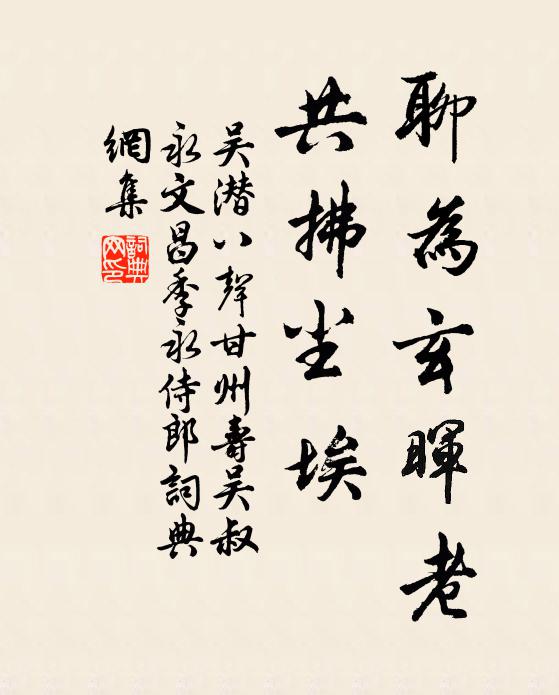 聊為玄暉老
共拂尘埃
吴潜八聲甘州壽吴叔
永文昌季永侍郎詞典
網集
詞典网印